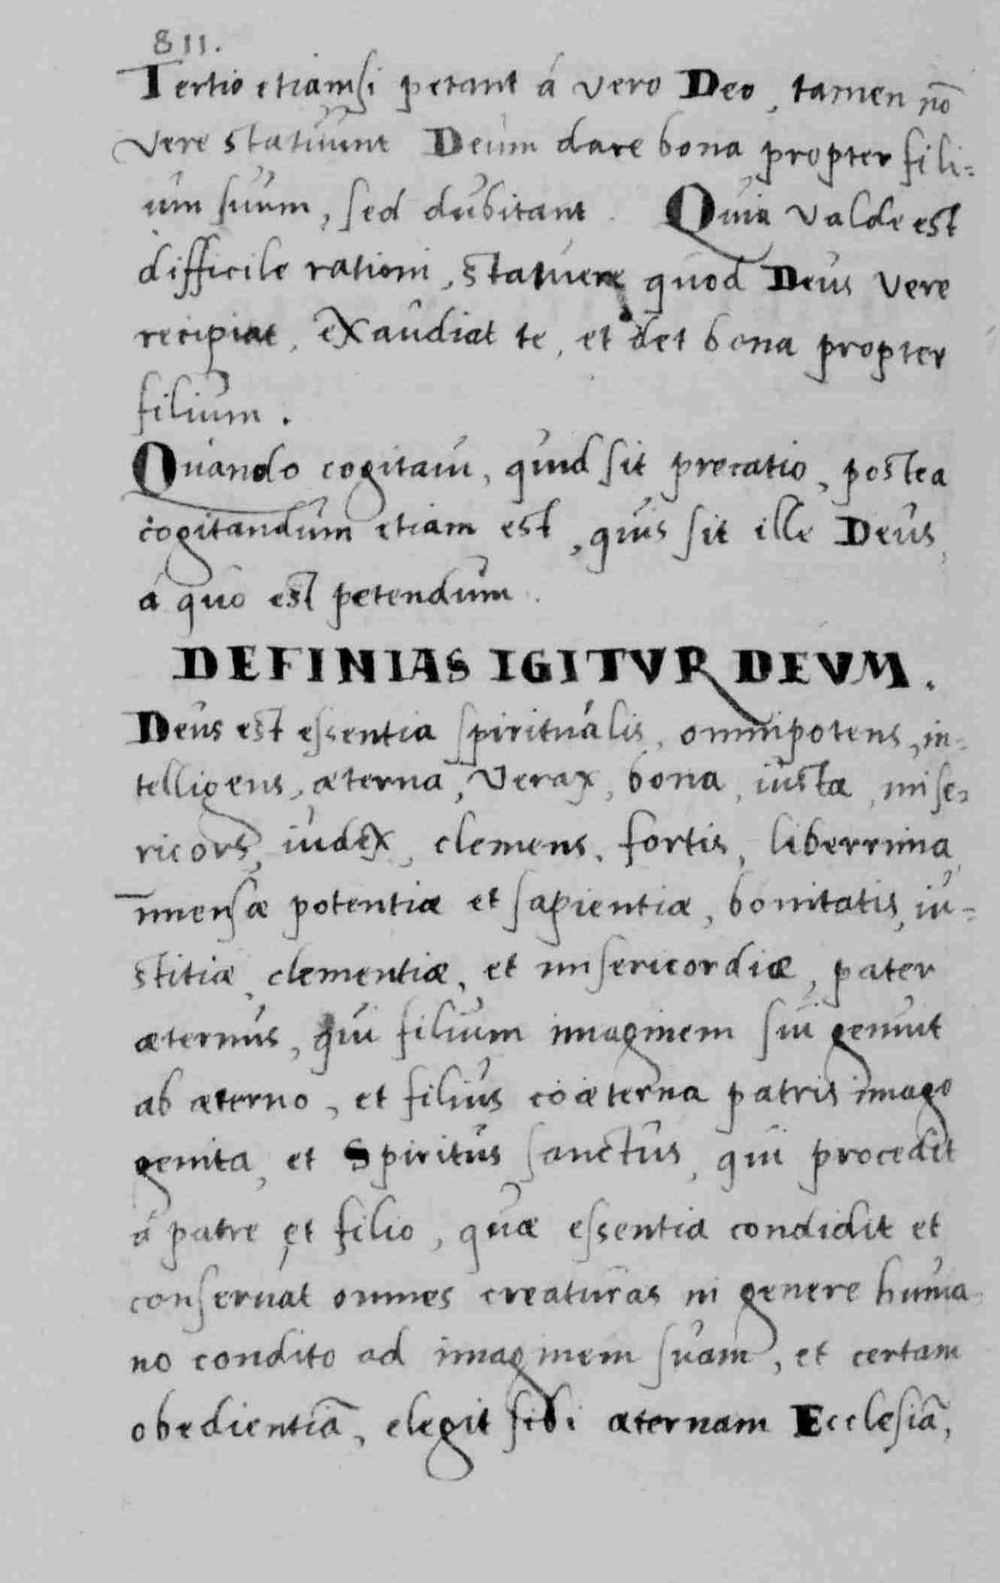 811.
Tertio etiamsi petant á vero Deo, tamen nō
vere statuunt Deum dare bona propter fili-
um suum, sed dubitant. Quia valde est
difficile rationi, statuere quod Deus vere
recipiat, exaudiat te, et det bona propter
filium.
Quando cogitaui, quid sit precatio, postea
cogitandum etiam est, quis sit ille Deus,
á quo est petendum.
DEFINIAS IGITVR DEVM.
Deus est essentia spiritualis, omnipotens, in-
telligens, æterna, verax, bona, iusta, mise-
ricors, iudex, clemens, fortis, liberrima,
īmensæ potentiæ et sapientiæ, bonitatis, iu-
stitiæ, clementiæ, et misericordiæ, pater
æternus, qui filium imaginem sui genuit
ab æterno, et filius coæterna patris imago
genita, et Spiritus sanctus, qui procedit
á patre et filio, quæ essentia condidit et
conseruat omnes creaturas in genere huma-
no condito ad imaginem suam, et certam
obedientiā, elegit sibi æternam Ecclesiā,